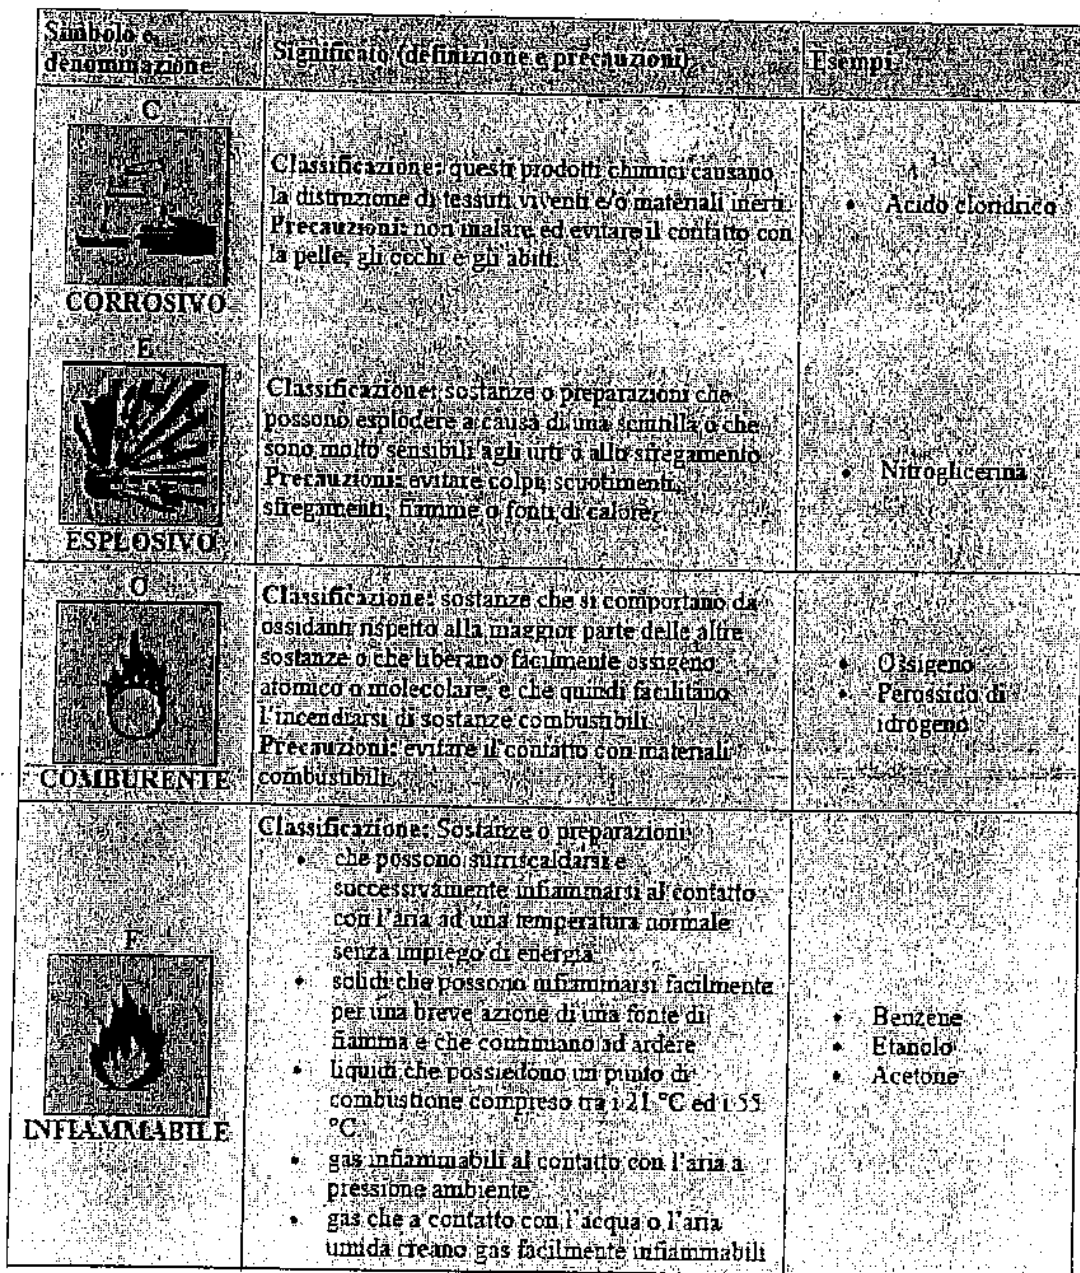 Simbolo e
denominazione
Significato (definizione e precauzioni)
Esempi
C
CORROSIVO
Classificazione: questi prodotti chimici causano
la distruzione di tessuti viventi e/o materiali inerti.
Precauzioni: non inalare ed evitare il contatto con
la pelle, gli occhi e gli abiti.
• Acido cloridrico
E
ESPLOSIVO
Classificazione: sostanze o preparazioni che
possono esplodere a causa di una scintilla o che
sono molto sensibili agli urti o allo sfregamento
Precauzioni: evitare colpi, scuotimenti,
sfregamenti, fiamme o fonti di calore.
• Nitroglicerina
O
COMBURENTE
Classificazione: sostanze che si comportano da
ossidanti rispetto alla maggior parte delle altre
sostanze o che liberano facilmente ossigeno
atomico o molecolare, e che quindi facilitano
l'incendiarsi di sostanze combustibili.
Precauzioni: evitare il contatto con materiali
combustibili.
• Ossigeno
• Perossido di
idrogeno
F
INFIAMMABILE
Classificazione: Sostanze o preparazioni:
• che possono surriscaldarsi e
successivamente infiammarsi al contatto
con l'aria ad una temperatura normale
senza impiego di energia
• solidi che possono infiammarsi facilmente
per una breve azione di una fonte di
fiamma e che continuano ad ardere
• liquidi che possiedono un punto di
combustione compreso tra i 21 °C ed i 55
°C
• gas infiammabili al contatto con l'aria a
pressione ambiente
• gas che a contatto con l'acqua o l'aria
umida creano gas facilmente infiammabili
• Benzene
• Etanolo
• Acetone